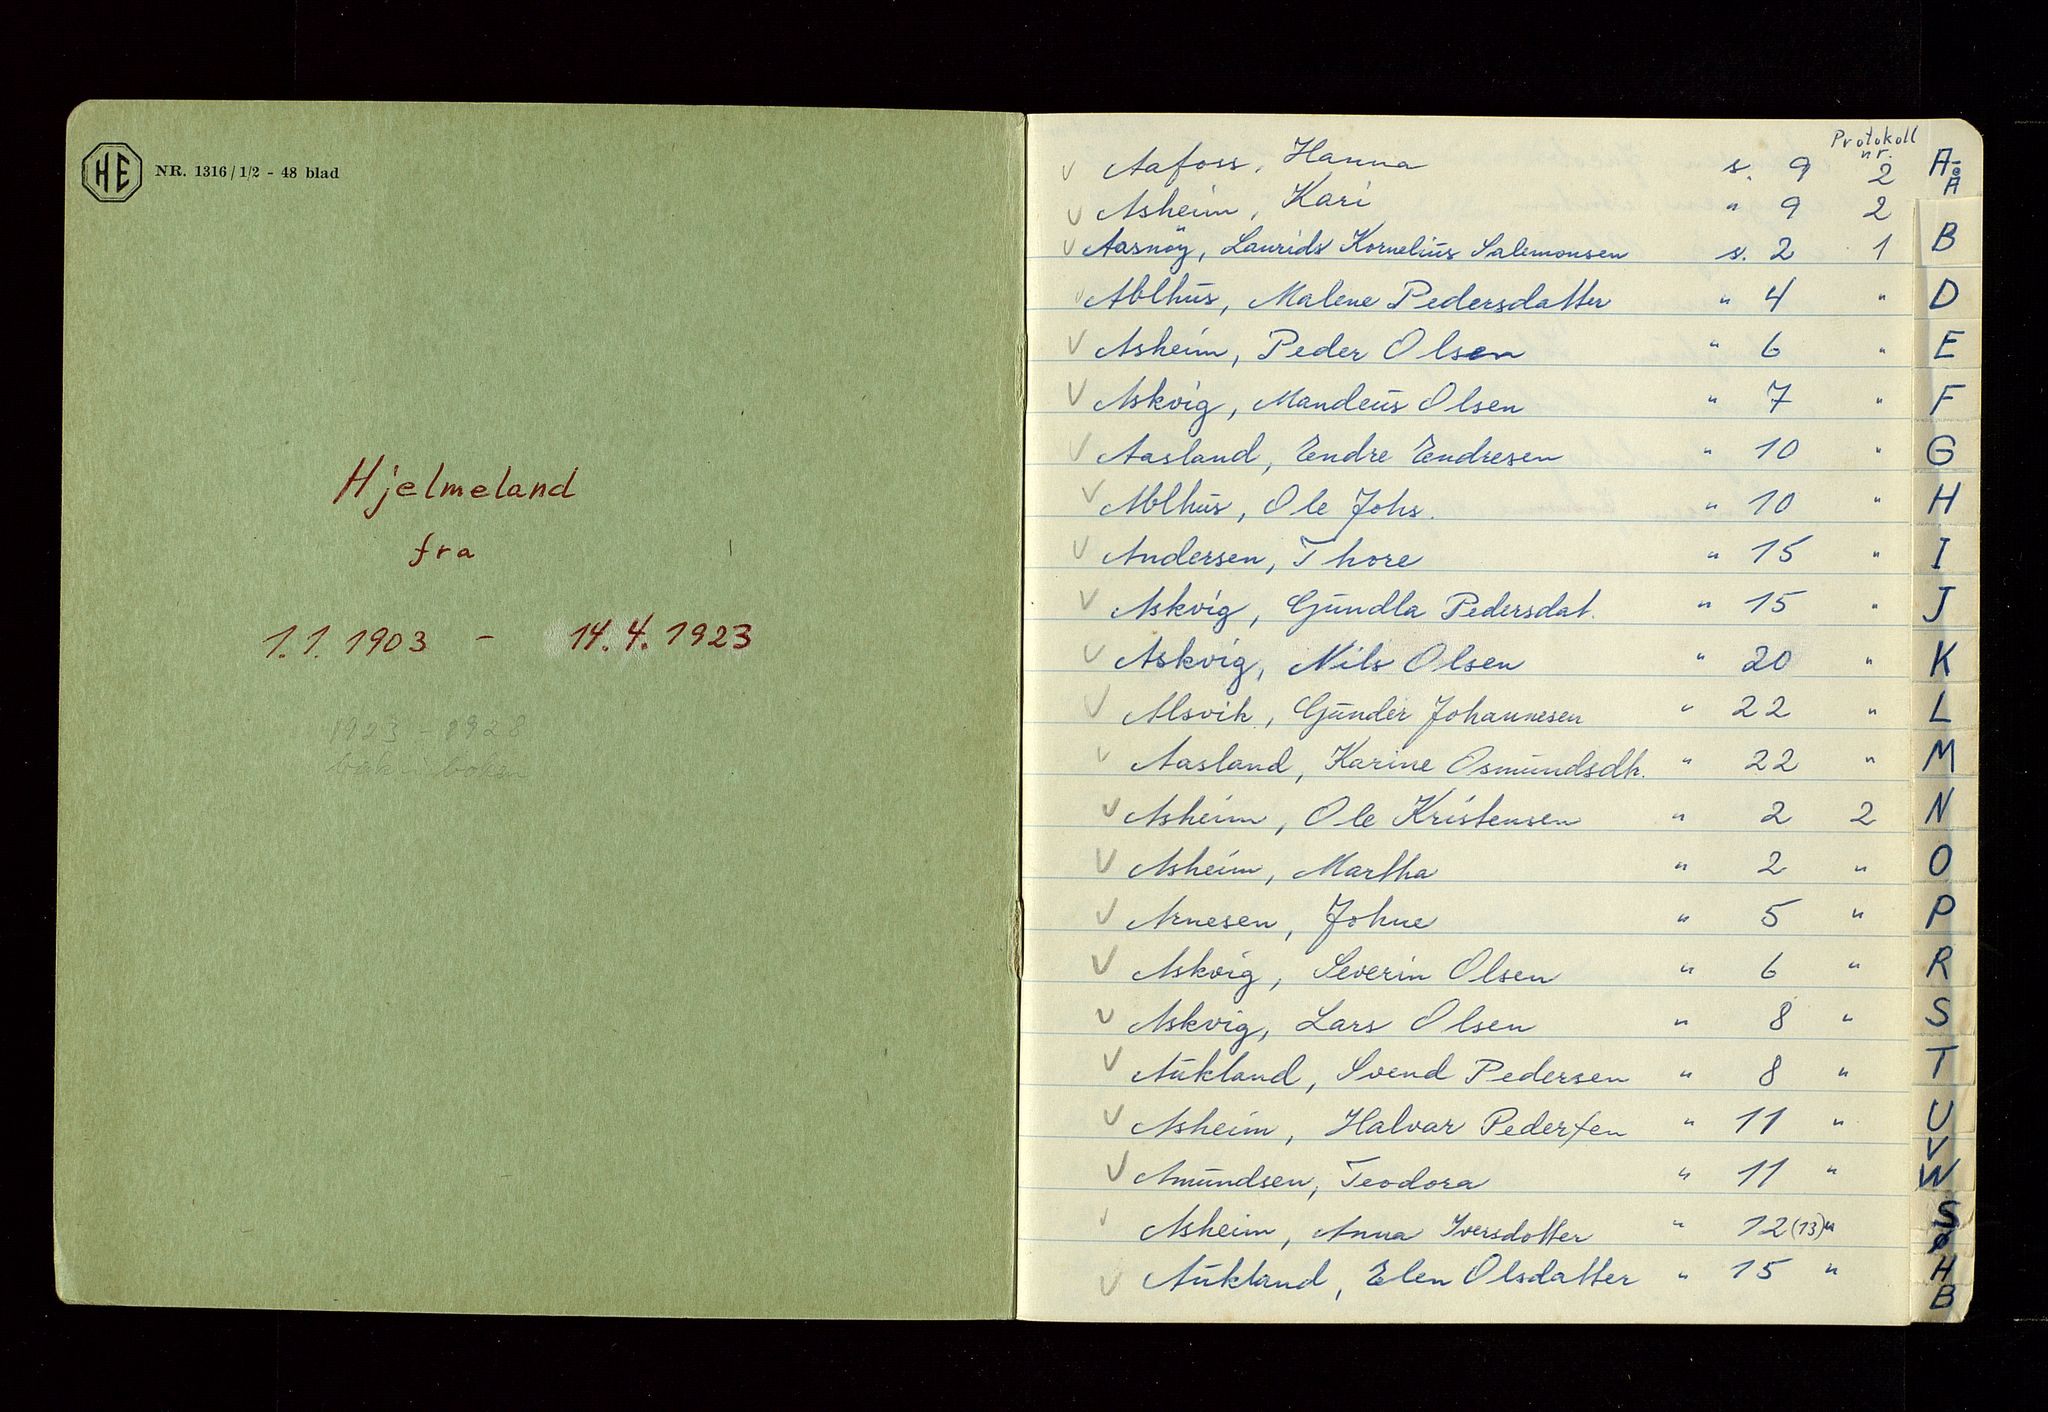 HE NR. 1316/1/2 - 48 blad
Hjelmeland
fra
1.1.1903 - 14.4.1923
1923 - 1928
bak i boken
Protokoll
nr.
V Aafoss, Hanna s. 9 2
V Asheim, Kari " 9 2
V Aasnöy, Laurids Kornelius Salemonsen s. 2 1
V Ablhus, Malene Pedersdatter " 4 "
V Asheim, Peder Olsen " 6 "
V Askvig, Mandeus Olsen " 7 "
V Aasland, Endre Endresen " 10 "
V Ablhus, Ole Johs. " 10 "
V Andersen, Thore " 15 "
V Askvig, Gundla Pedersdat. " 15 "
V Askvig, Nils Olsen " 20 "
V Alsvik, Gunder Johannesen " 22 "
V Aasland, Karine Osmundsdtr. " 22 "
V Asheim, Ole Kristensen " 2 2
V Asheim, Martha " 2 "
V Arnesen, Johne " 5 "
V Askvig, Severin Olsen " 6 "
V Askvig, Lars Olsen " 8 "
V Aukland, Svend Pedersen " 8 "
V Asheim, Halvar Pedersen " 11 "
V Amundsen, Teodora " 11 "
V Asheim, Anna Iversdotter " 12 (13) "
V Aukland, Elen Olsdatter " 15 "
A-Å
B
D
E
F
G
H
I
J
K
L
M
N
O
P
R
S
T
U
V
W
S
Ø
H
B